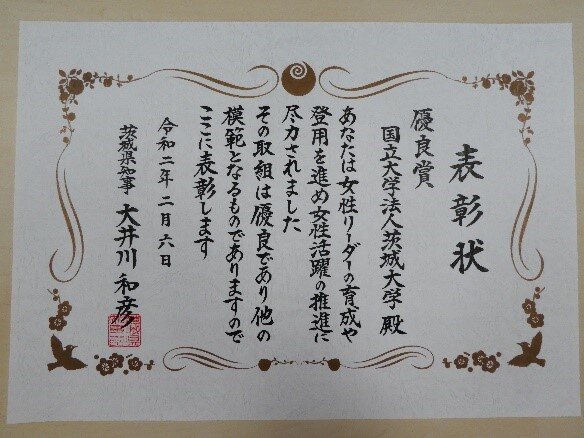 表彰状
優良賞
国立大学法人茨城大学 殿
あなたは女性リーダーの育成や
登用を進め女性活躍の推進に
尽力されました
その取組は優良であり他の
模範となるものでありますので
ここに表彰します
令和二年二月六日
茨城県知事 大井川和彦